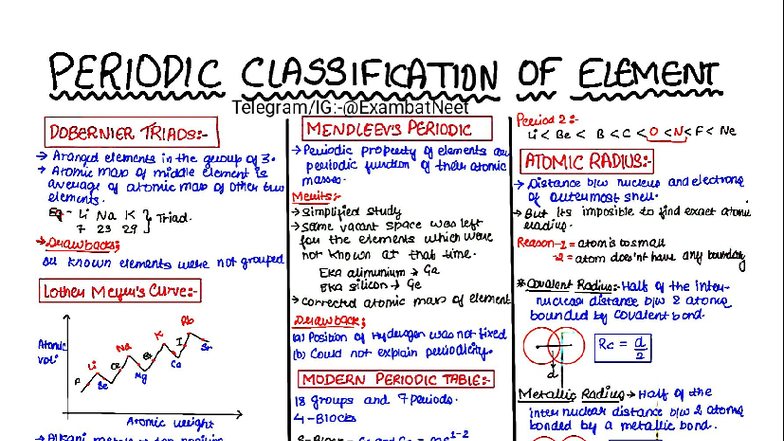 PERIODIC CLASSIFICATION OF ELEMENT
Telegram/IG:-@ExambatNeet
DOBERNIER TRIADS:-
→ Arranged elements in the group of 3.
→ Atomic mass of middle element is
average of atomic mass of other two
elements.
Eg - Li Na K } Triad.
7 23 29
→ Drawback;
all known elements were not grouped
Lother Meyer's Curve:-
Atomic
vol
F Li Be Na Mg K Ca I Rb Sr
Atomic weight
MENDLEEVS PERIODIC
→ Periodic property of elements are
periodic function of their atomic
masses.
Merits:-
→ Simplified study
→ Some vacant space was left
for the elements which were
not known at that time.
EKA aliminium → Ga
EKA silicon → Ge
→ corrected atomic mass of element
Drawback;
(a) Position of Hydrogen was not fixed
(b) Could not explain periodicity.
MODERN PERIODIC TABLE:-
18 groups and 7 Periods.
4-Blocks
Period 2:-
Li < Be < B < C < O < N < F < Ne
ATOMIC RADIUS:-
→ Distance b/w nucleus and electrons
of outermost shell.
→ But its imposible to find exact atomic
radius.
Reason-1 = atom is too small
-2 = atom does'nt have any boundary
* Covalent Radius:- Half of the inter-
nuclear distance b/w 2 atoms
bounded by covalent bond.
d
Rc = d/2
Metallic Radius → Half of the
inter nuclear distance b/w 2 atoms
bonded by a metallic bond.